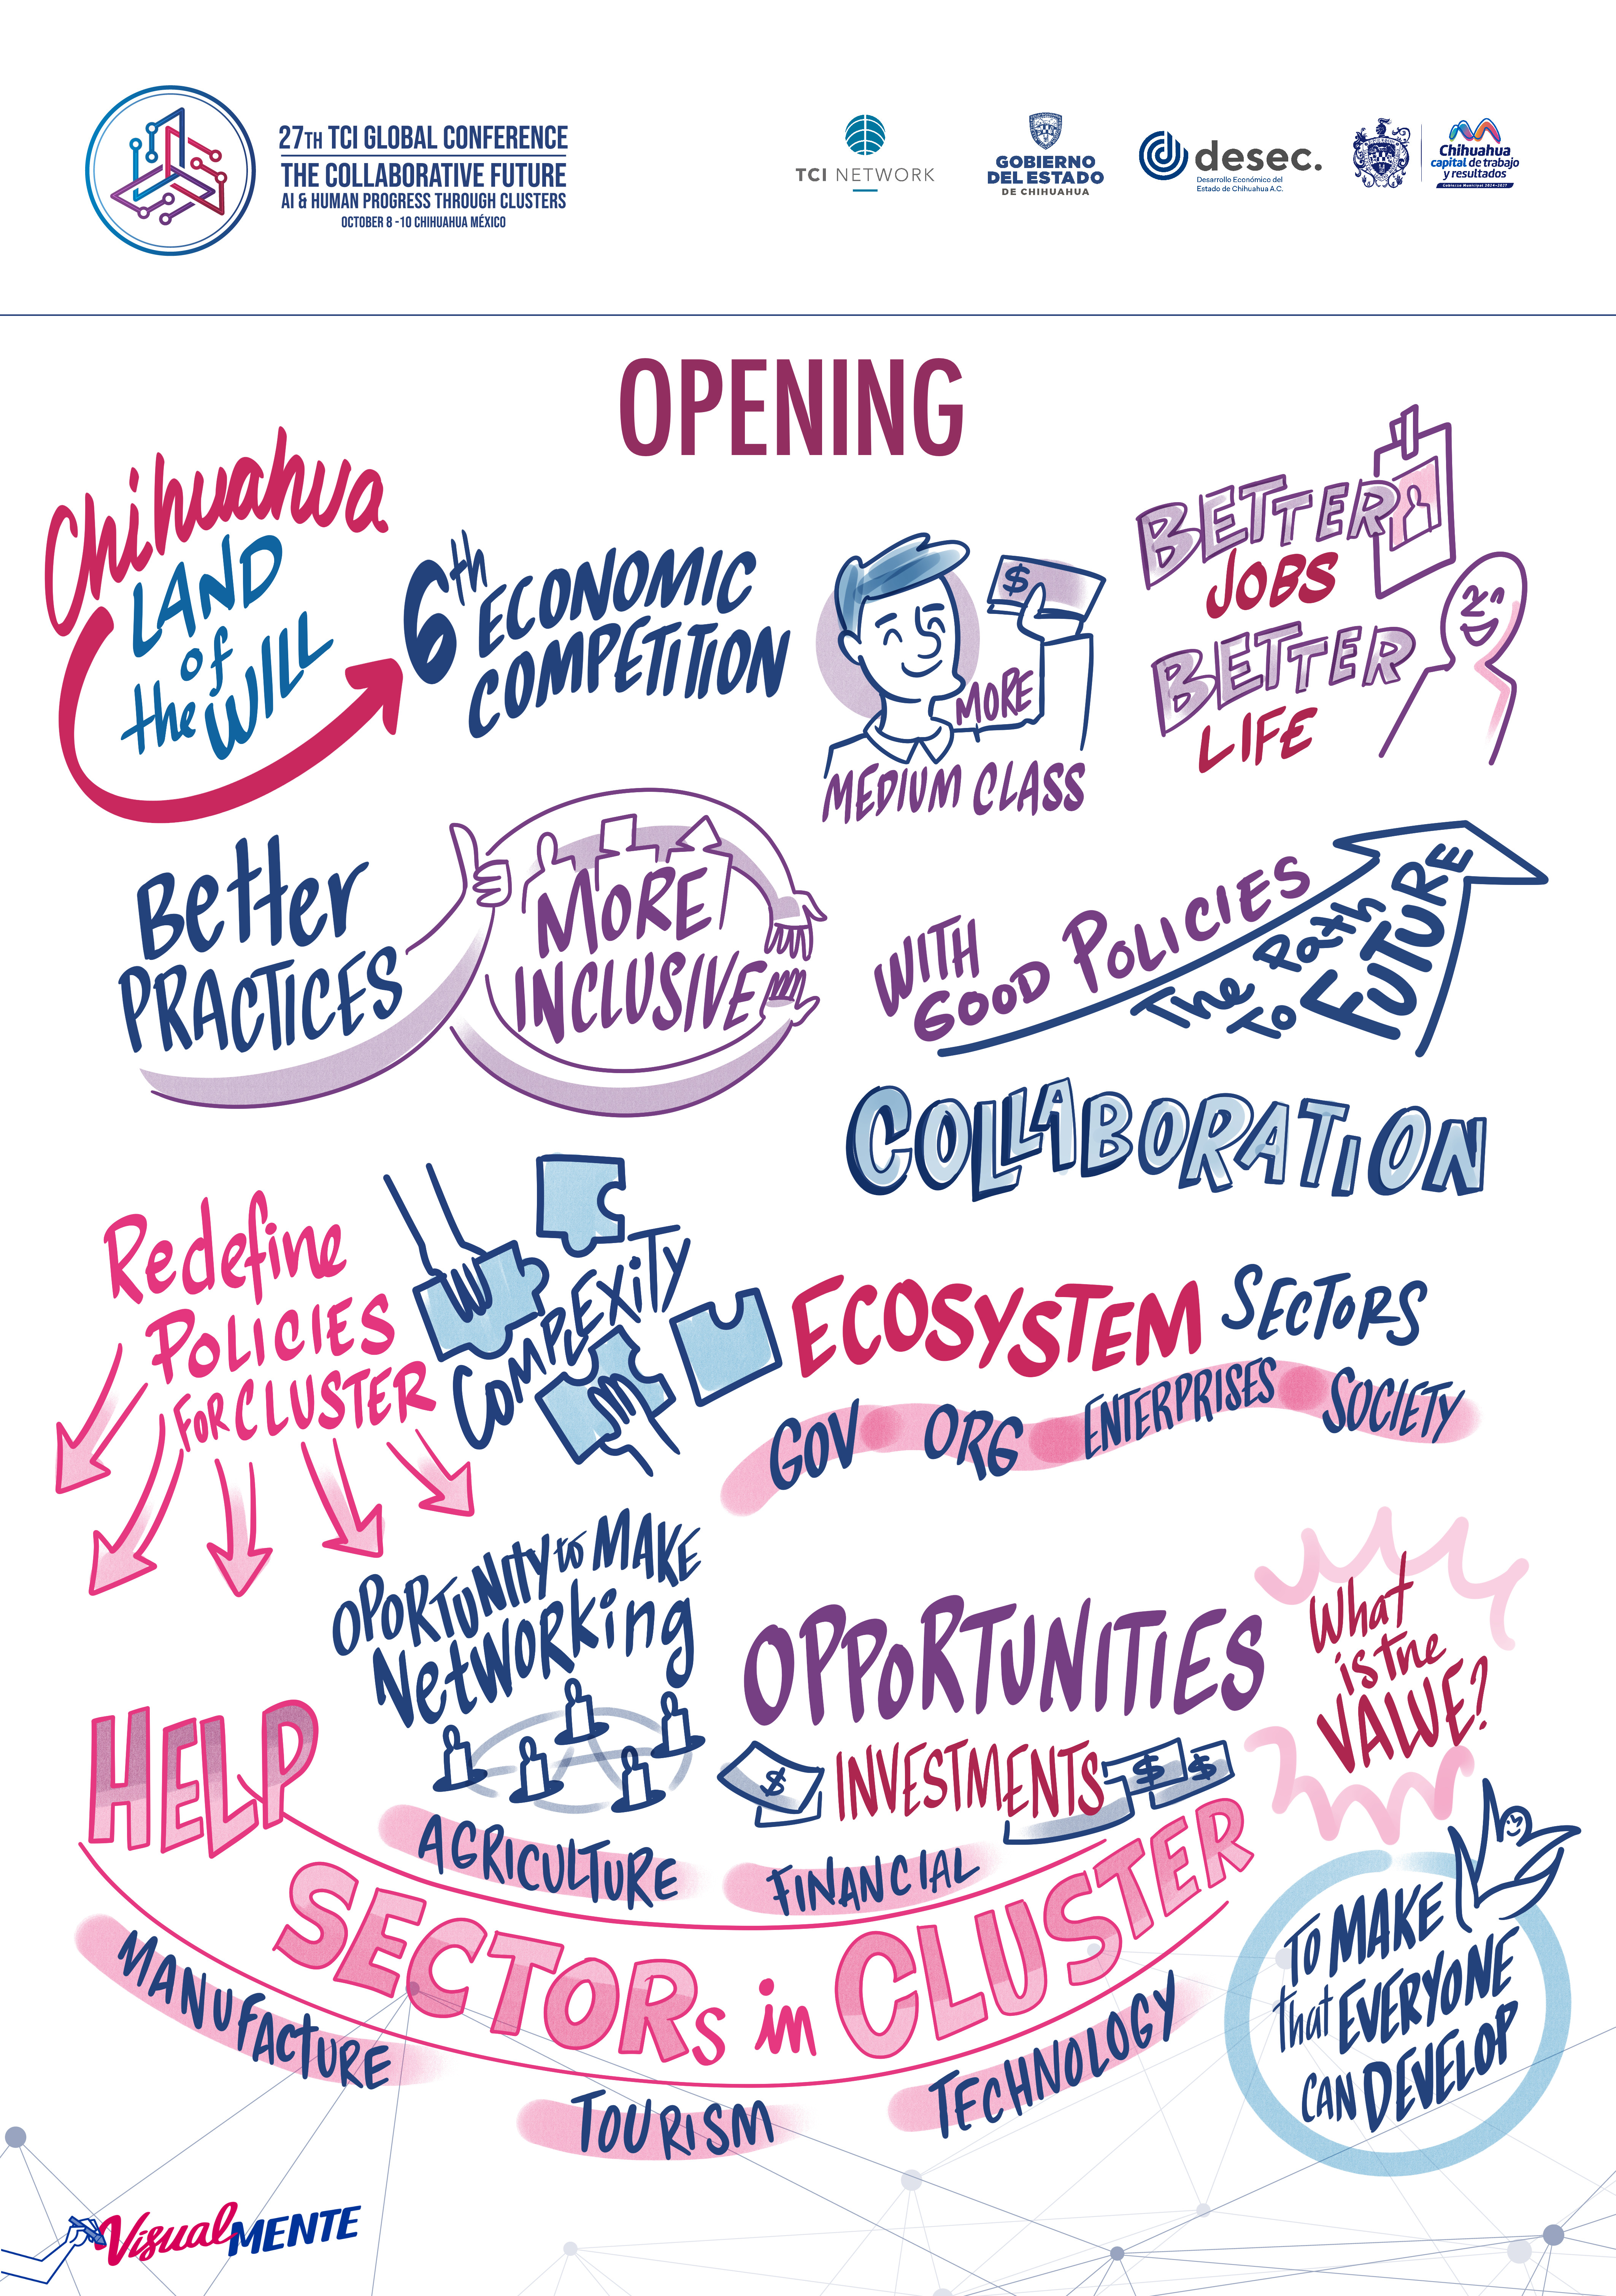 27TH TCI GLOBAL CONFERENCE
THE COLLABORATIVE FUTURE
AI & HUMAN PROGRESS THROUGH CLUSTERS
OCTOBER 8 -10 CHIHUAHUA MÉXICO
TCI NETWORK
GOBIERNO
DEL ESTADO
DE CHIHUAHUA
desec.
Desarrollo Económico del
Estado de Chihuahua A.C.
Chihuahua
capital de trabajo
y resultados
Gobierno Municipal 2024-2027
OPENING
Chihuahua
LAND
of
the WILL
6th ECONOMIC
COMPETITION
$
MORE
MEDIUM CLASS
BETTER
JOBS
BETTER
LIFE
Better
PRACTICES
MORE
INCLUSIVE
WITH
GOOD POLICIES
The Path
To FUTURE
COLLABORATION
Redefine
POLICIES
FOR CLUSTER
COMPLEXITY
ECOSYSTEM SECTORS
GOV ORG ENTERPRISES SOCIETY
OPORTUNITY to MAKE
NetWORKing
OPPORTUNITIES
$ INVESTMENTS $ $
What
is tne
VALUE?
HELP
SECTORS in CLUSTER
AGRICULTURE
FINANCIAL
MANUFACTURE
TOURISM
TECHNOLOGY
TO MAKE
that EVERYONE
CAN DEVELOP
VisualMENTE